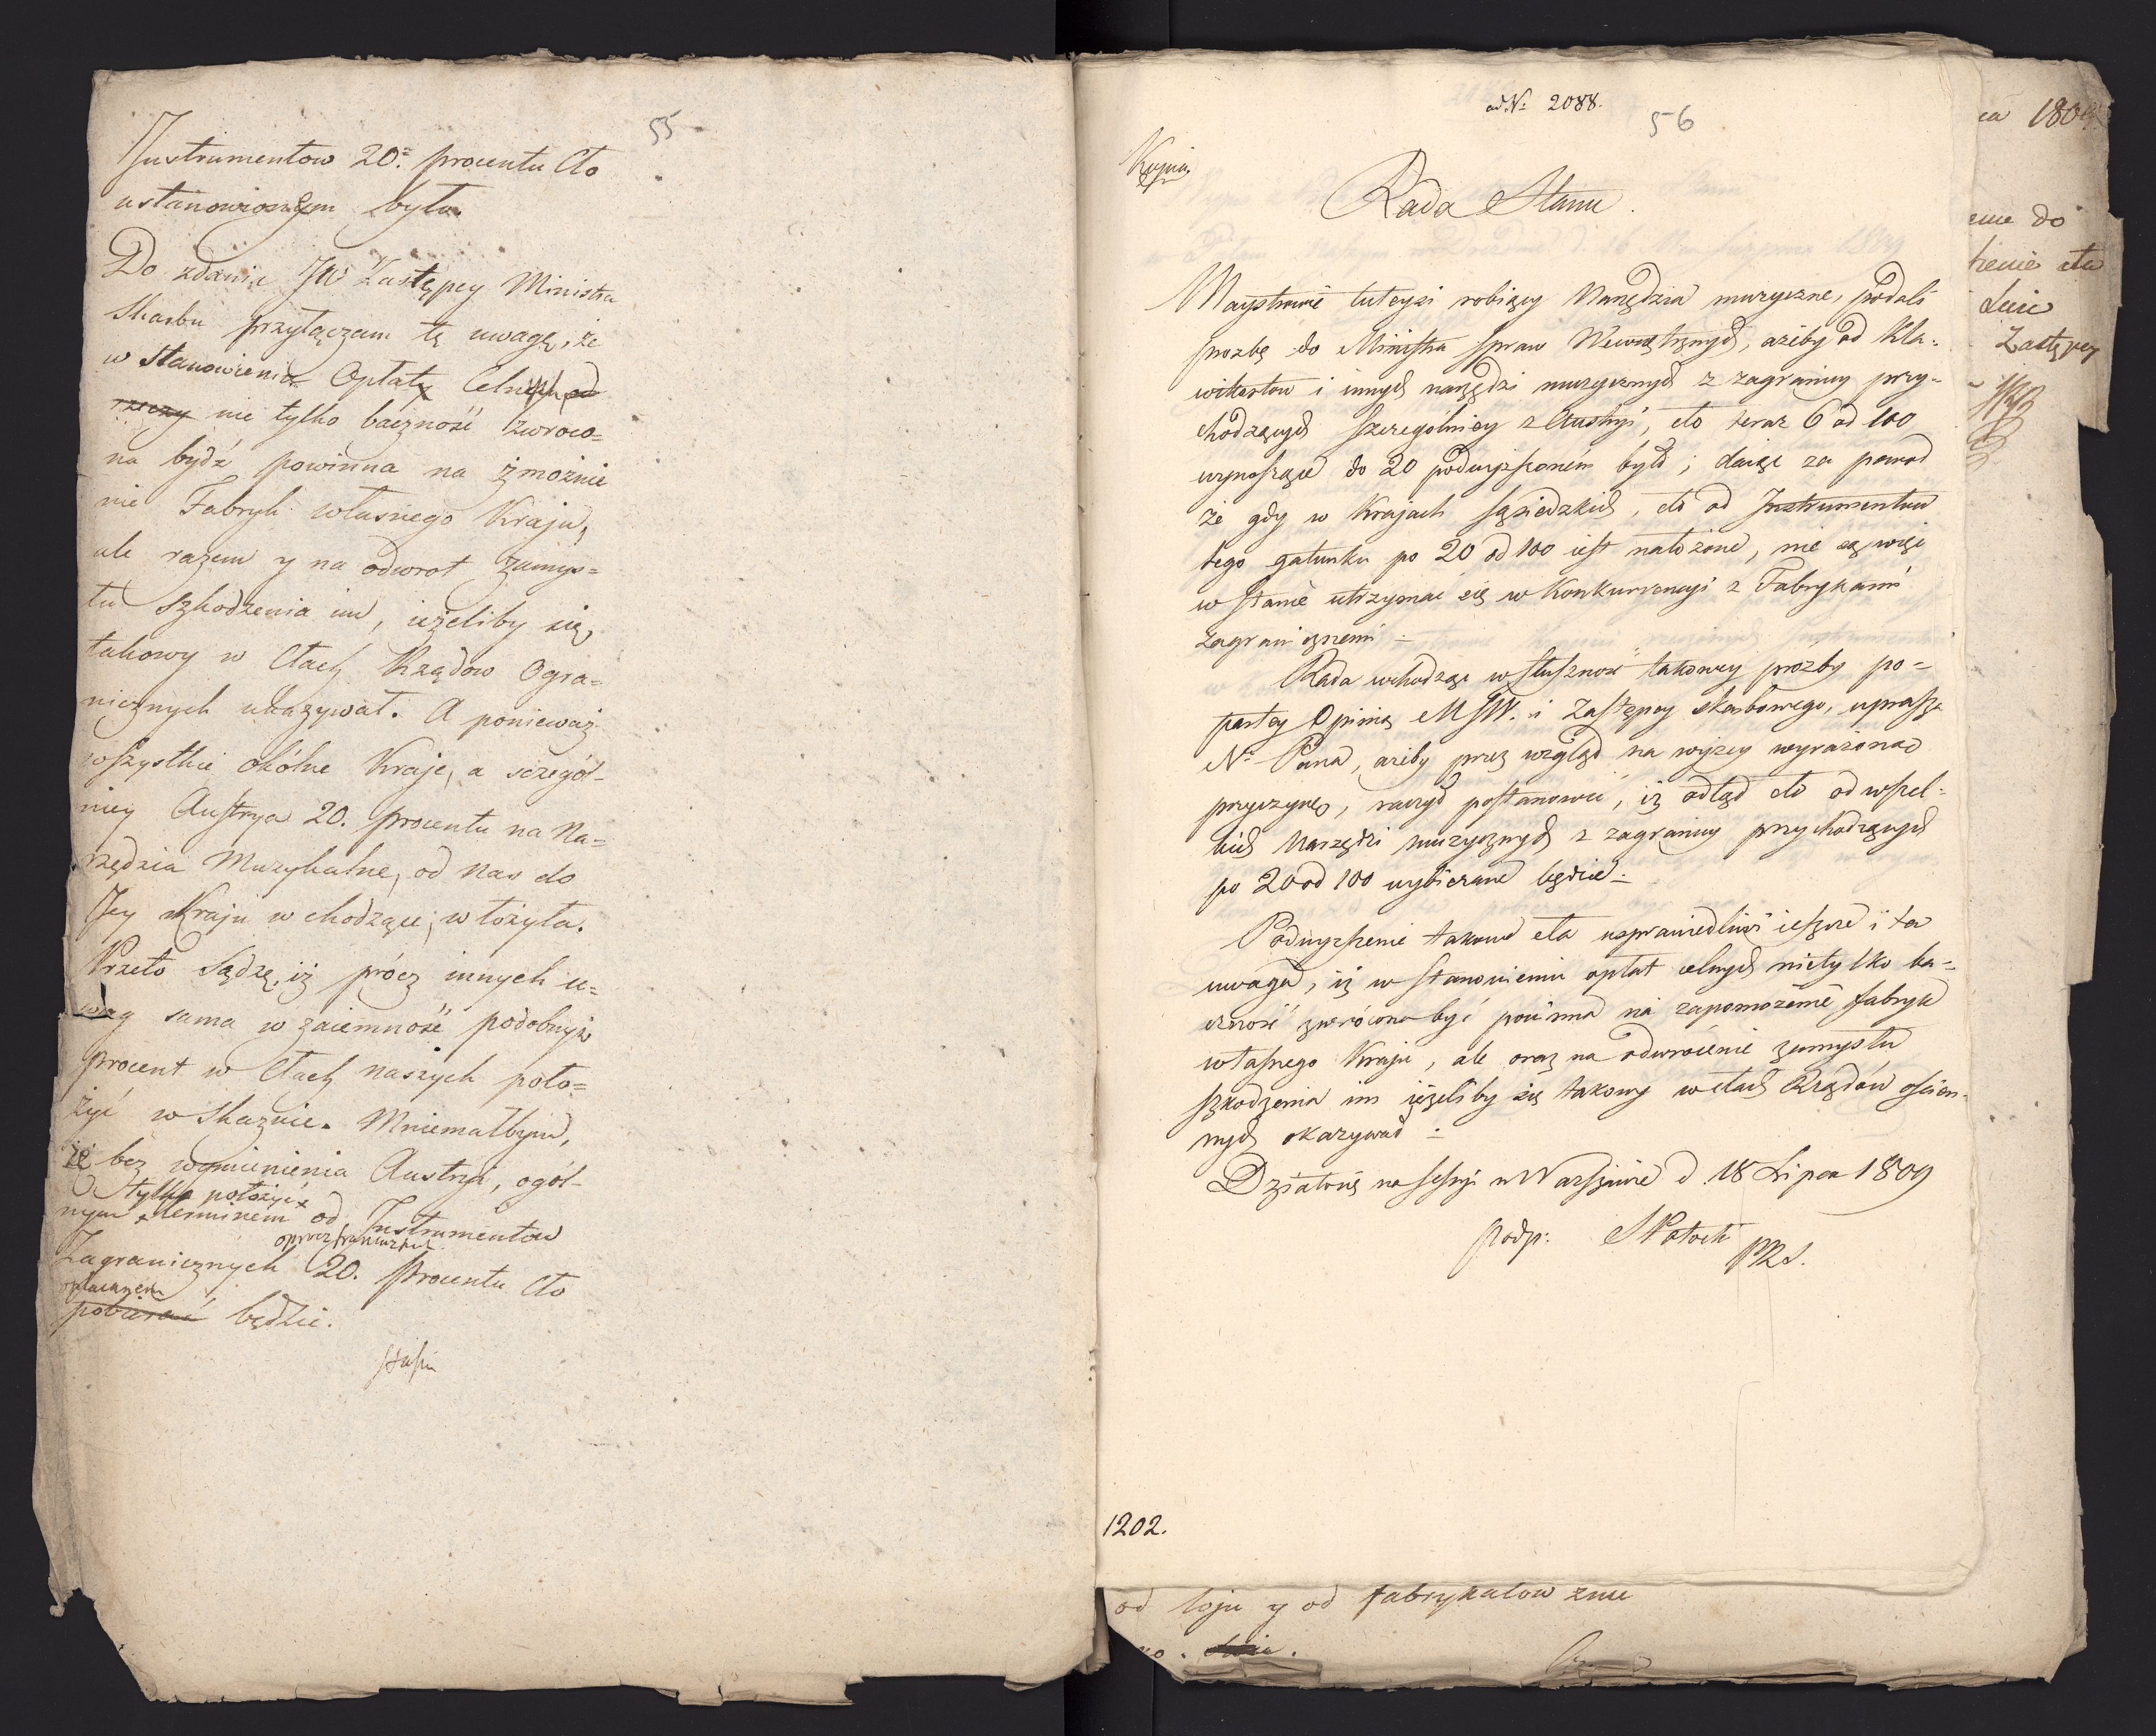 55
Instrumentow 20. procentu Cło
ustanowionym było.
Do zdania JW Zastępcy Ministra
Skarbu przyłączam tę uwagę, że
w Stanowieniu Opłaty Celnych od
rzeczy nie tylko baczność zwróco=
na bydź powinna na zmożnie
nie Fabryk własnego Kraju,
ale razem y na odwrot zamys=
łu szkodzenia im, ieżeliby się,
takowy w Cłach Rządow Ogra=
nicznych ukazywał. A ponieważ
wszystkie okólne Kraje, a sczegól-
niey Austrya 20. procentu na Na=
rzędzia Muzykalne, od nas do
Jey Kraju wchodzące, włożyła.
Przeto Sądzę, iż prócz innych u=
wag sama wzaiemność podobnyż
procent w Cłach naszych poło=
żyć wskazuie. Mniemałbym,
że bez wymienienia Austryi, ogól-
tylko położyć
nym terminem od Instrumentow
oprocz francuzkich
Zagranicznych 20. Procentu Cło
opłacanem
pobierać będzie.
ad N: 2088.
56
Kopia
Rada Stanu.
Maystrowie tuteysi robiący Narzędzia muzyczne, podali
prozbę do Ministra Spraw Wewnętrznych, ażeby od Kla=
wikortow i innych narzędzi muzycznych z zagranicy przy=
chodzących szczególniey z Austryi, cło teraz 6 od 100
wynoszące do 20 podwyższonem było; daiąc za powod
że gdy w Krajach sąsiedzkich, cło od Instrumentow
tego gatunku po 20 od 100 iest nałożone, nie są więc
w stanie utrzymać się w Konkurrencyi z Fabrykami
zagranicznemi.
Rada wchodząc w słuszność takowey prozby po=
partey Opinią MSW. i Zastępcy skarbowego, uprasza
N. Pana, ażeby przez wzgląd na wyżey wyrażone
przyczyny, raczył postanowić, iż odtąd cło od wszel=
kich Narzędzi muzycznych z zagranicy przychodzących
po 20 od 100 wybierane będzie.
Podwyższenie takowe cła usprawiedliwi ieszcze i ta
uwaga, iż w stanowieniu opłat celnych nietylko ba=
czność zwrócona być powinna na zapomożenie fabryk
własnego Kraju, ale oraz na odwrócenie zamysłu
szkodzenia im ieżeliby się takowy w cłach Rządów ościen=
nych okazywał.
Działo się na Sessyi w Warszawie d. 18 Lipca 1809
podp: S Potocki
PRS.
1202.
ca 1809
do
cła
Zastępcy
od łoju y od fabrykatow